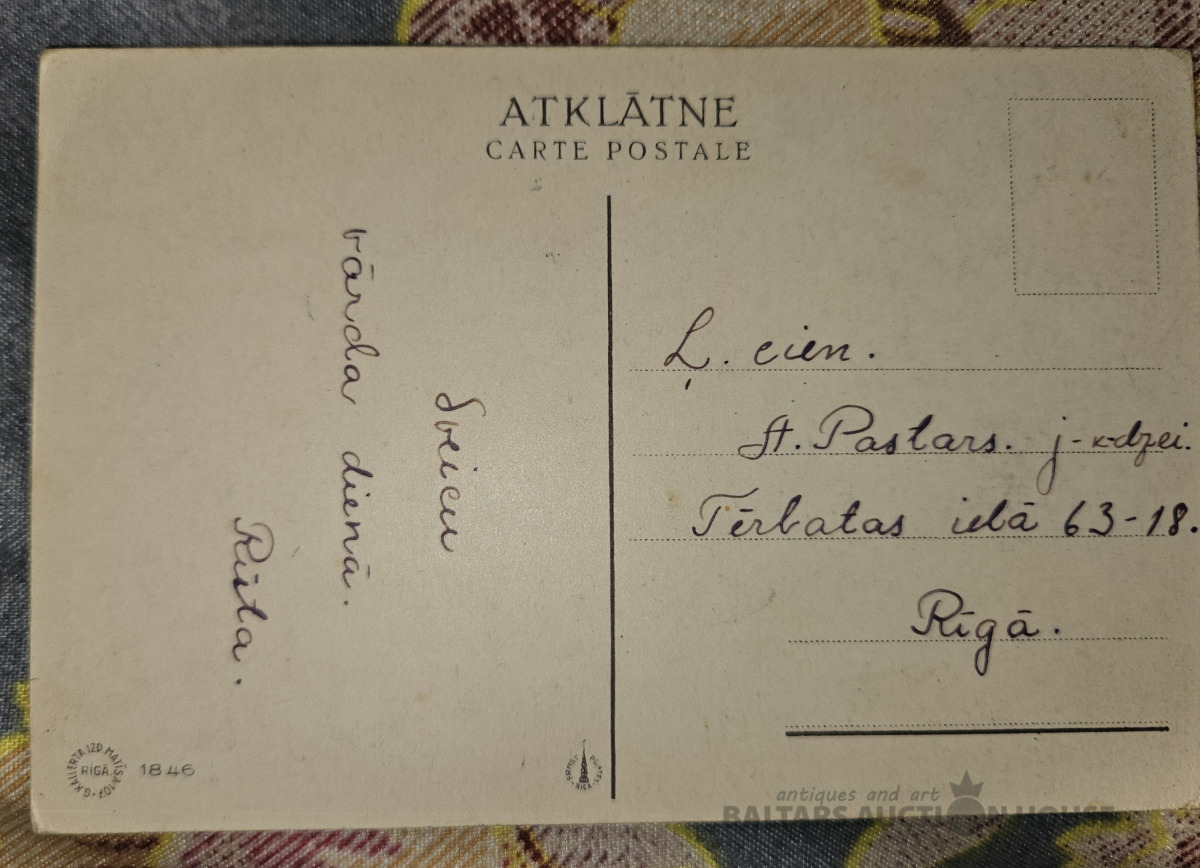 ATKLĀTNE
CARTE POSTALE
Sveicu
vārda dienā.
Rista.
Ļ. cien.
A. Pastars. j-k-dzei.
Tērbatas ielā 63-18.
Rīgā.
G. KALLERTA IZD MATĪSA 107
RĪGĀ
1846
antiques and art
BALTARS AUCTION HOUSE